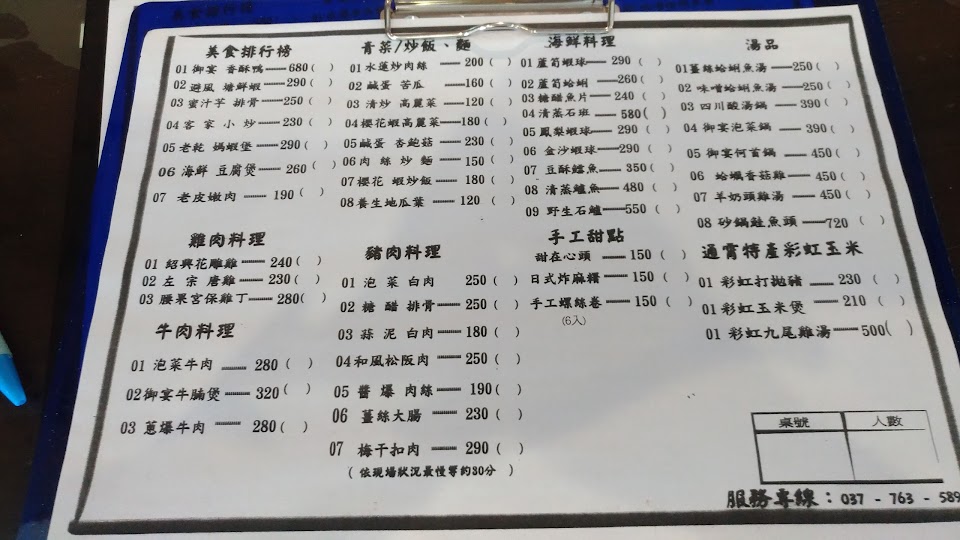 美食排行榜
01 御宴 香酥鴨 680 ( )
02 避風 塘鮮蝦 290 ( )
03 蜜汁芋 排骨 250 ( )
04 客家小炒 230 ( )
05 老乾 媽蝦堡 290 ( )
06 海鮮 豆腐煲 260 ( )
07 老皮嫩肉 190 ( )
雞肉料理
01 紹興花雕雞 240 ( )
02 左宗唐雞 230 ( )
03 腰果宮保雞丁 280 ( )
牛肉料理
01 泡菜牛肉 280 ( )
02 御宴牛腩煲 320 ( )
03 蔥爆牛肉 280 ( )
青菜/炒飯、麵
01 水蓮炒肉絲 200 ( )
02 鹹蛋 苦瓜 160 ( )
03 清炒 高麗菜 120 ( )
04 櫻花蝦高麗菜 180 ( )
05 鹹蛋 杏鮑菇 230 ( )
06 肉絲炒麵 150 ( )
07 櫻花 蝦炒飯 180 ( )
08 養生地瓜葉 120 ( )
豬肉料理
01 泡菜白肉 250 ( )
02 糖醋排骨 250 ( )
03 蒜泥白肉 180 ( )
04 和風松阪肉 250 ( )
05 醬爆肉絲 190 ( )
06 薑絲大腸 230 ( )
07 梅干扣肉 290 ( )
( 依現場狀況最慢等約30分 )
海鮮料理
01 蘆筍蝦球 290 ( )
02 蘆筍蛤蜊 260 ( )
03 糖醋魚片 240 ( )
04 清蒸石班 580 ( )
05 鳳梨蝦球 290 ( )
06 金沙蝦球 290 ( )
07 豆酥鱈魚 350 ( )
08 清蒸鱸魚 480 ( )
09 野生石鱸 550 ( )
手工甜點
甜在心頭 150 ( )
日式炸麻糬 150 ( )
手工螺絲卷 150 ( )
(6入)
湯品
01 薑絲蛤蜊魚湯 250 ( )
02 味噌蛤蜊魚湯 250 ( )
03 四川酸湯鍋 390 ( )
04 御宴泡菜鍋 390 ( )
05 御宴何首鍋 450 ( )
06 蛤蠣香菇雞 450 ( )
07 羊奶頭雞湯 450 ( )
08 砂鍋鮭魚頭 720 ( )
通霄特產彩虹玉米
01 彩虹打拋豬 230 ( )
01 彩虹玉米煲 210 ( )
01 彩虹九尾雞湯 500 ( )
桌號 人數
服務專線：037 - 763 - 589